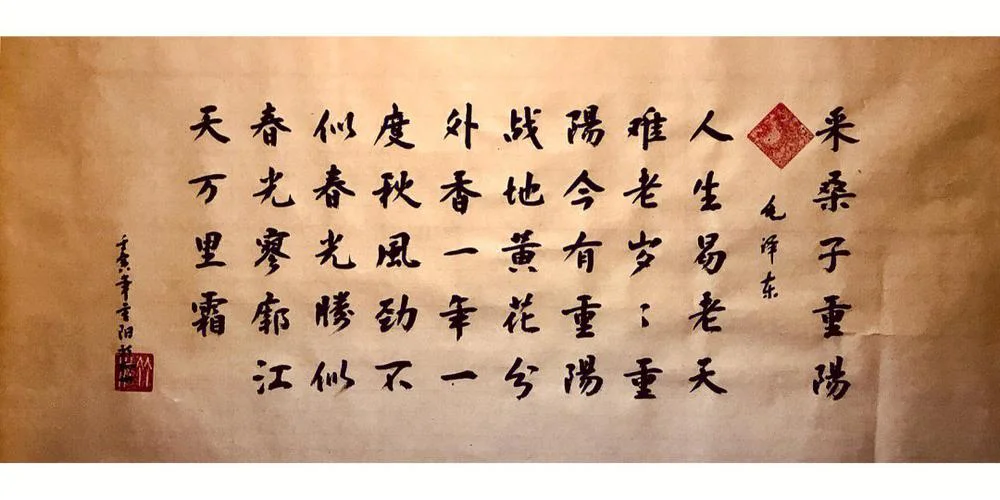 采桑子重陽
毛泽东
人生易老天
难老岁〻重
陽今有重陽
战地黄花分
外香一年一
度秋风劲不
似春光勝似
春光寥廓江
天万里霜
年重阳